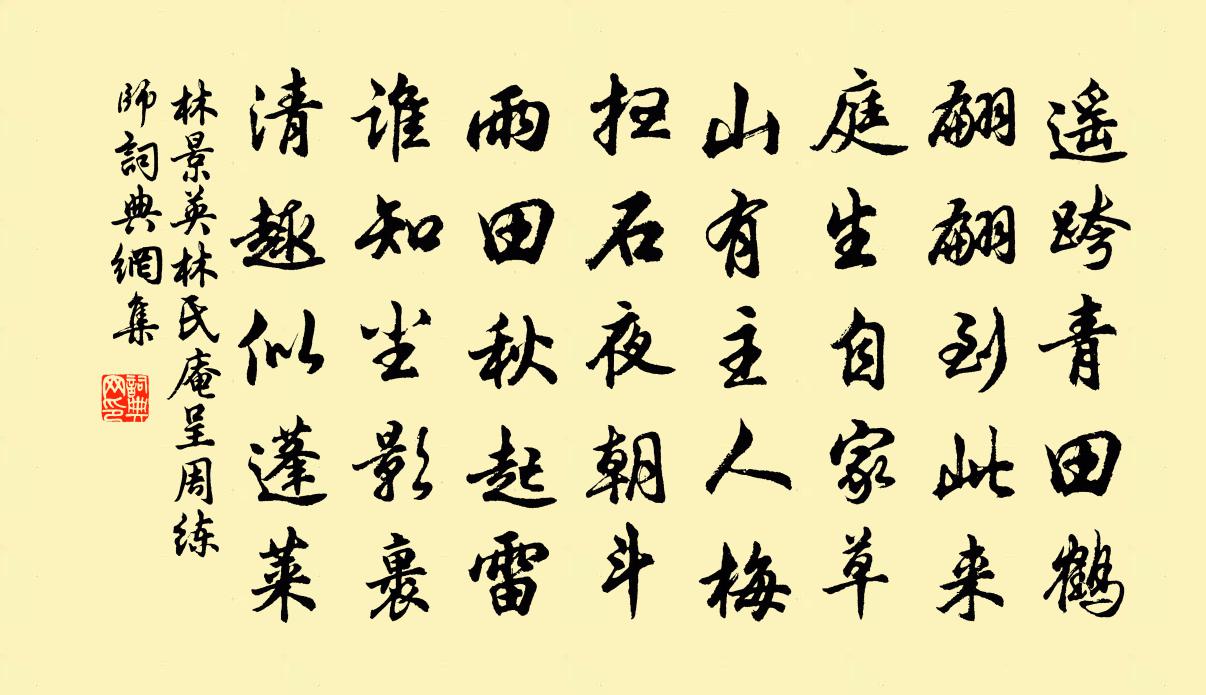 遥跨青田鹤
翩翩到此来
庭生自家草
山有主人梅
扫石夜朝斗
雨田秋起雷
谁知尘影裏
清趣似蓬莱
林景英林民庵呈周练
师詞典網集
詞典网印